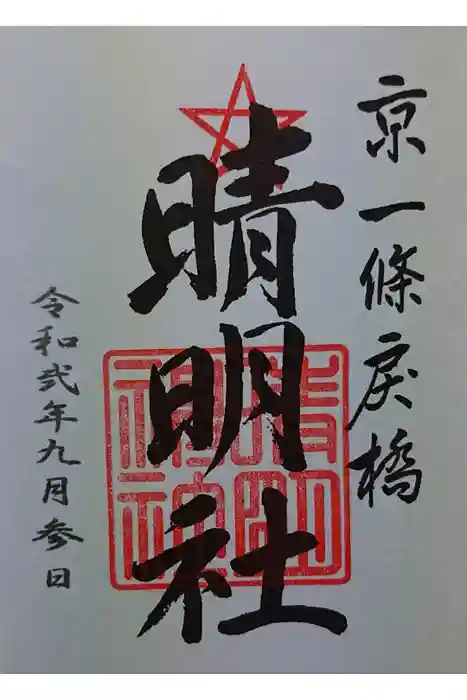 京一條戻橋
晴明社
令和弐年九月参日
晴明
神社